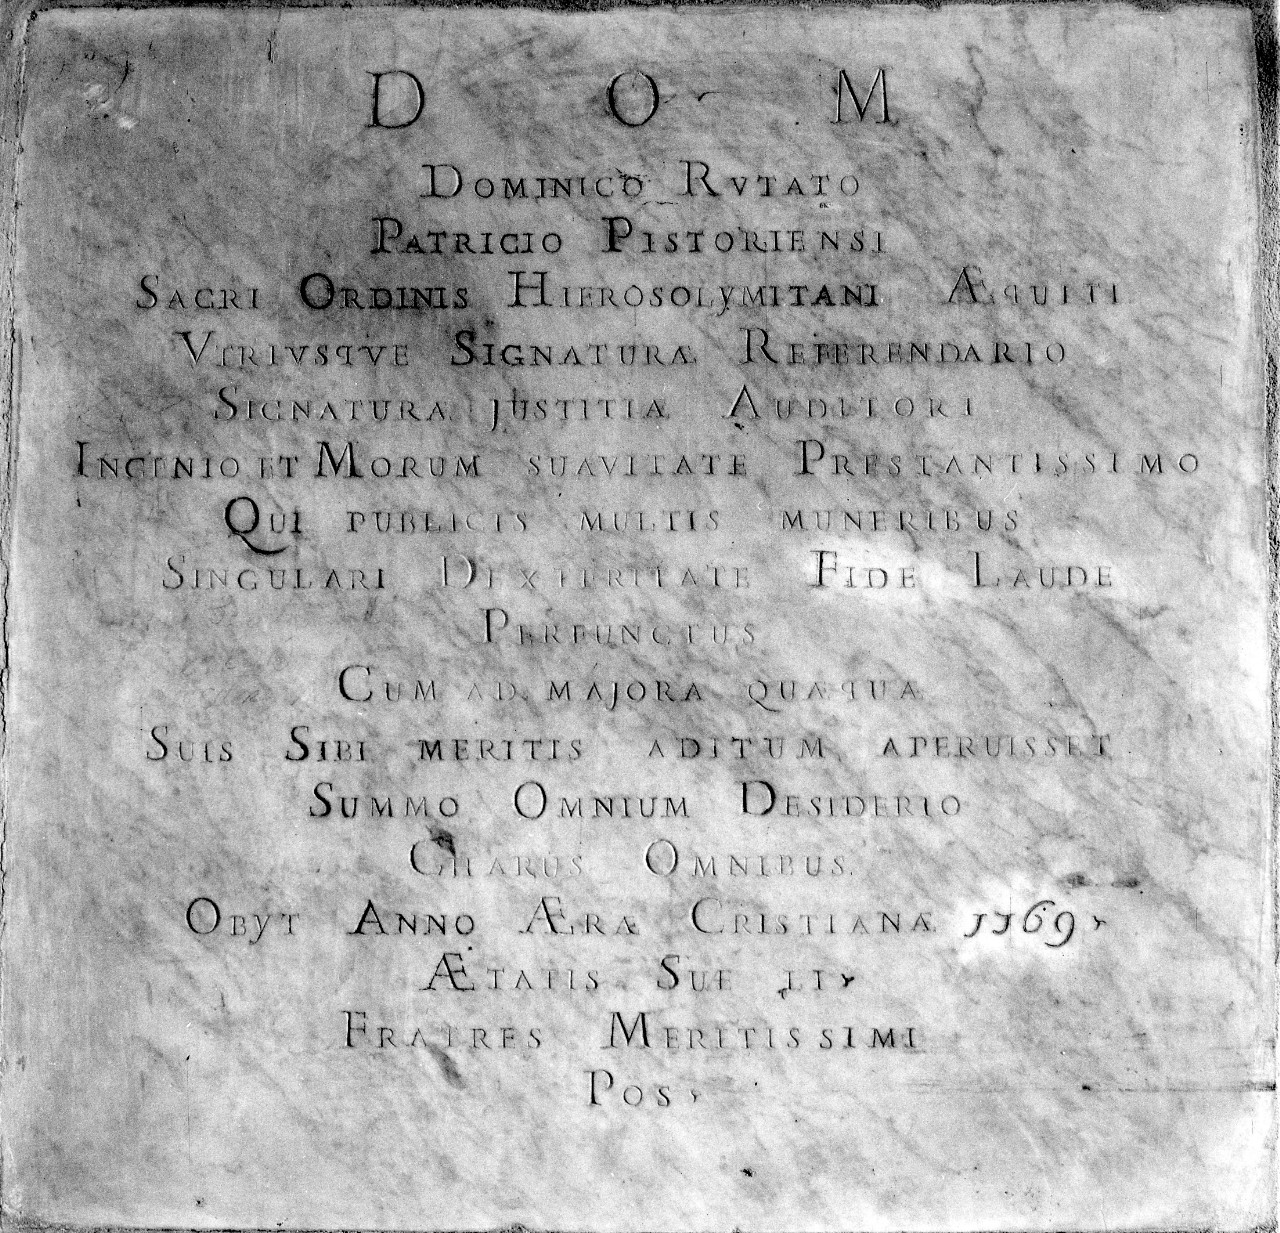 D O M
DOMINICO RVTATO
PATRICIO PISTORIENSI
SACRI ORDINIS HIEROSOLYMITANI ÆQUITI
VTRIVSQVE SIGNATURÆ REFERENDARIO
SIGNATURA JUSTITIÆ AUDITORI
INGENIO ET MORUM SUAVITATE PRESTANTISSIMO
QUI PUBLICIS MULTIS MUNERIBUS
SINGULARI DEXTERITATE FIDE LAUDE
PERFUNCTUS
CUM AD MAJORA QUAQUA
SUIS SIBI MERITIS ADITUM APERUISSET
SUMMO OMNIUM DESIDERIO
CHARUS OMNIBUS
OBYT ANNO ÆRÆ CRISTIANÆ 1769
ÆTATIS SUE LI
FRATRES MERITISSIMI
POS